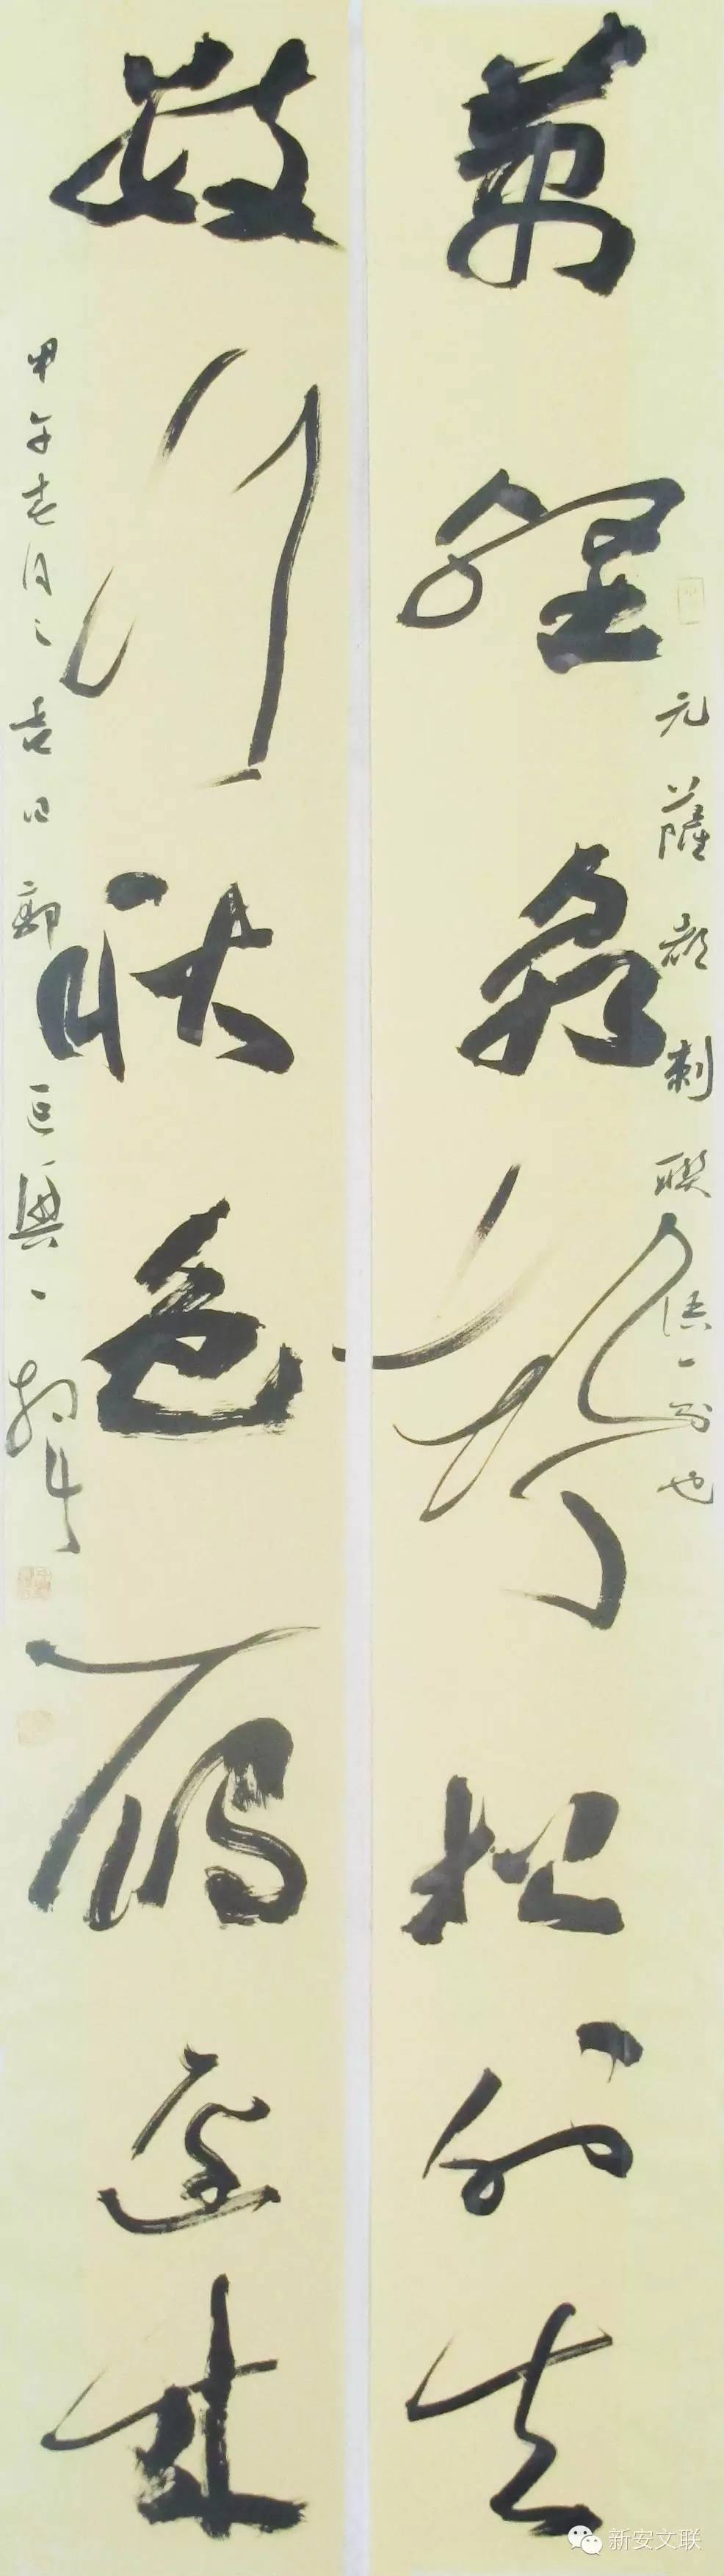 萬壑泉聲松外去
元薩都刺聯語一則也
數行秋色雁邊來
甲午春月之吉日郭巨興一揮
新安文联